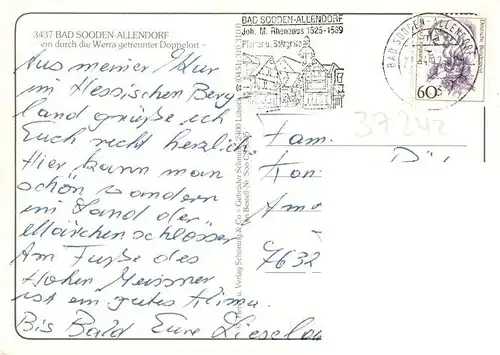 3437 BAD SOODEN-ALLENDORF
- ein durch die Werra getrennter Doppelort -
Aus meiner Kur
im Hessischen Berg
land grüße ich
Euch recht herzlich
Hier kann man
schön wandern
im Land der
Märchenschlösser
Am Fuße des
Hohen Meisner
ist ein gutes Klima.
Bis Bald Eure Lieselo
BAD SOODEN-ALLENDORF
Joh. M. Rhenanus 1525-1589
Pfarrer u. Salzgräfe
BAD SOODEN-ALLENDORF
Deutsche Bundespost
60
37242
Fam.
7632